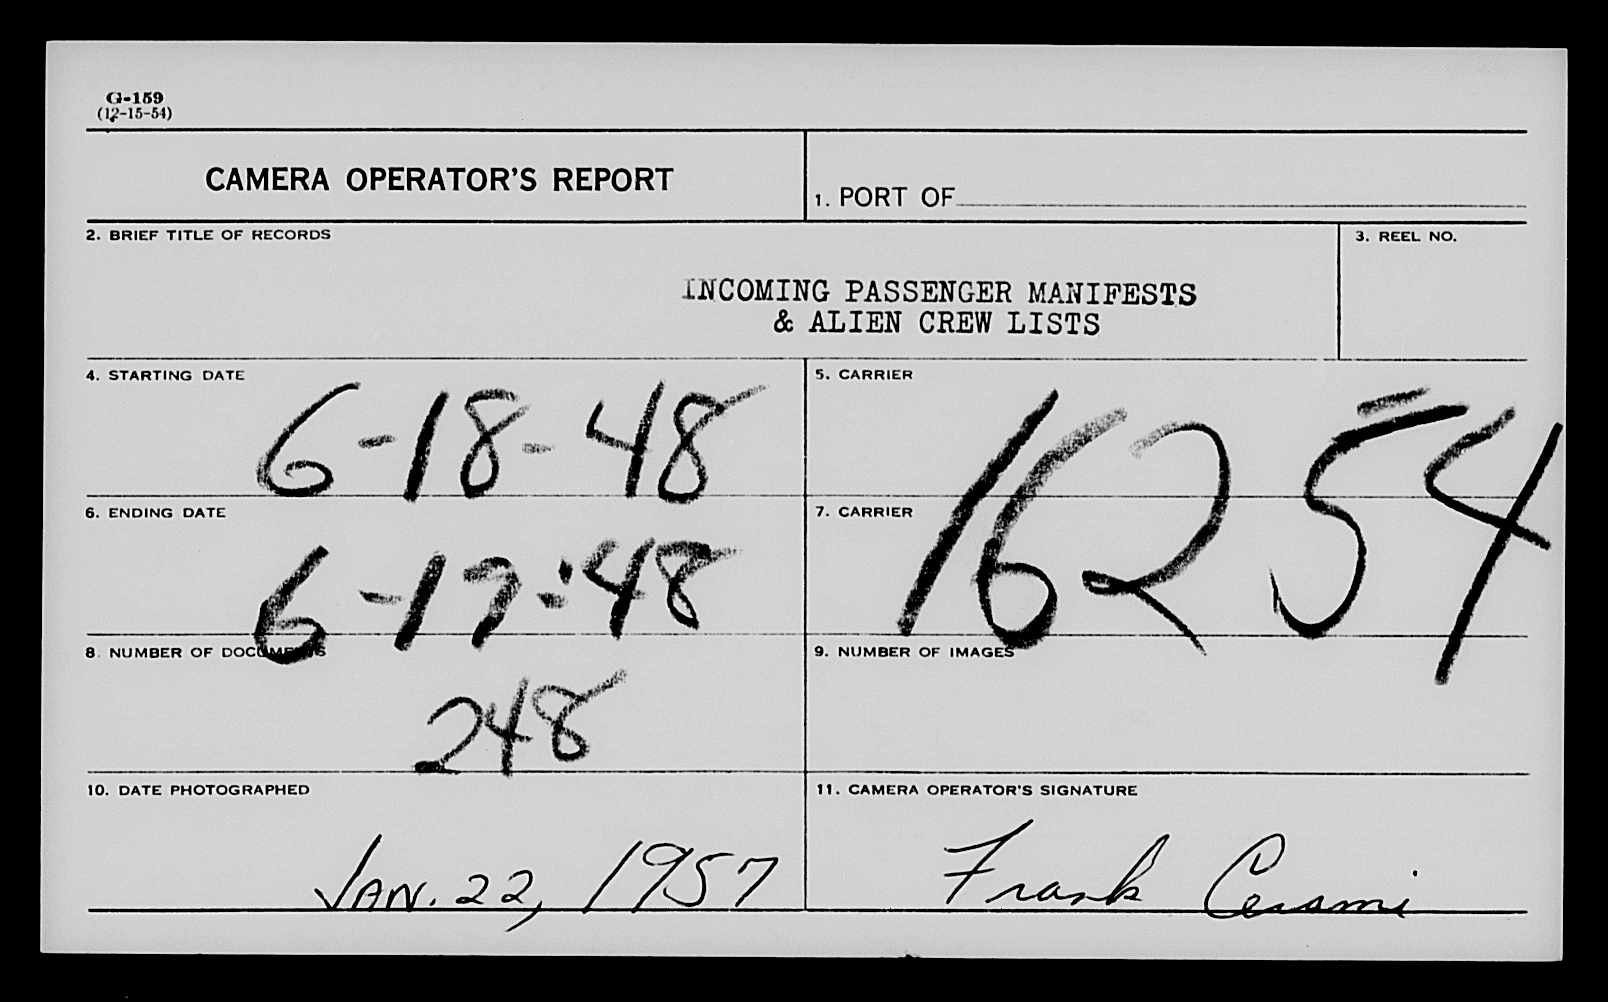 G-159
(12-15-54)
CAMERA OPERATOR'S REPORT
1. PORT OF
2. BRIEF TITLE OF RECORDS
3. REEL NO.
INCOMING PASSENGER MANIFESTS
& ALIEN CREW LISTS
4. STARTING DATE
6-18-48
5. CARRIER
16254
6. ENDING DATE
6-17-48
7. CARRIER
8. NUMBER OF DOCUMENTS
248
9. NUMBER OF IMAGES
10. DATE PHOTOGRAPHED
JAN. 22, 1957
11. CAMERA OPERATOR'S SIGNATURE
Frank